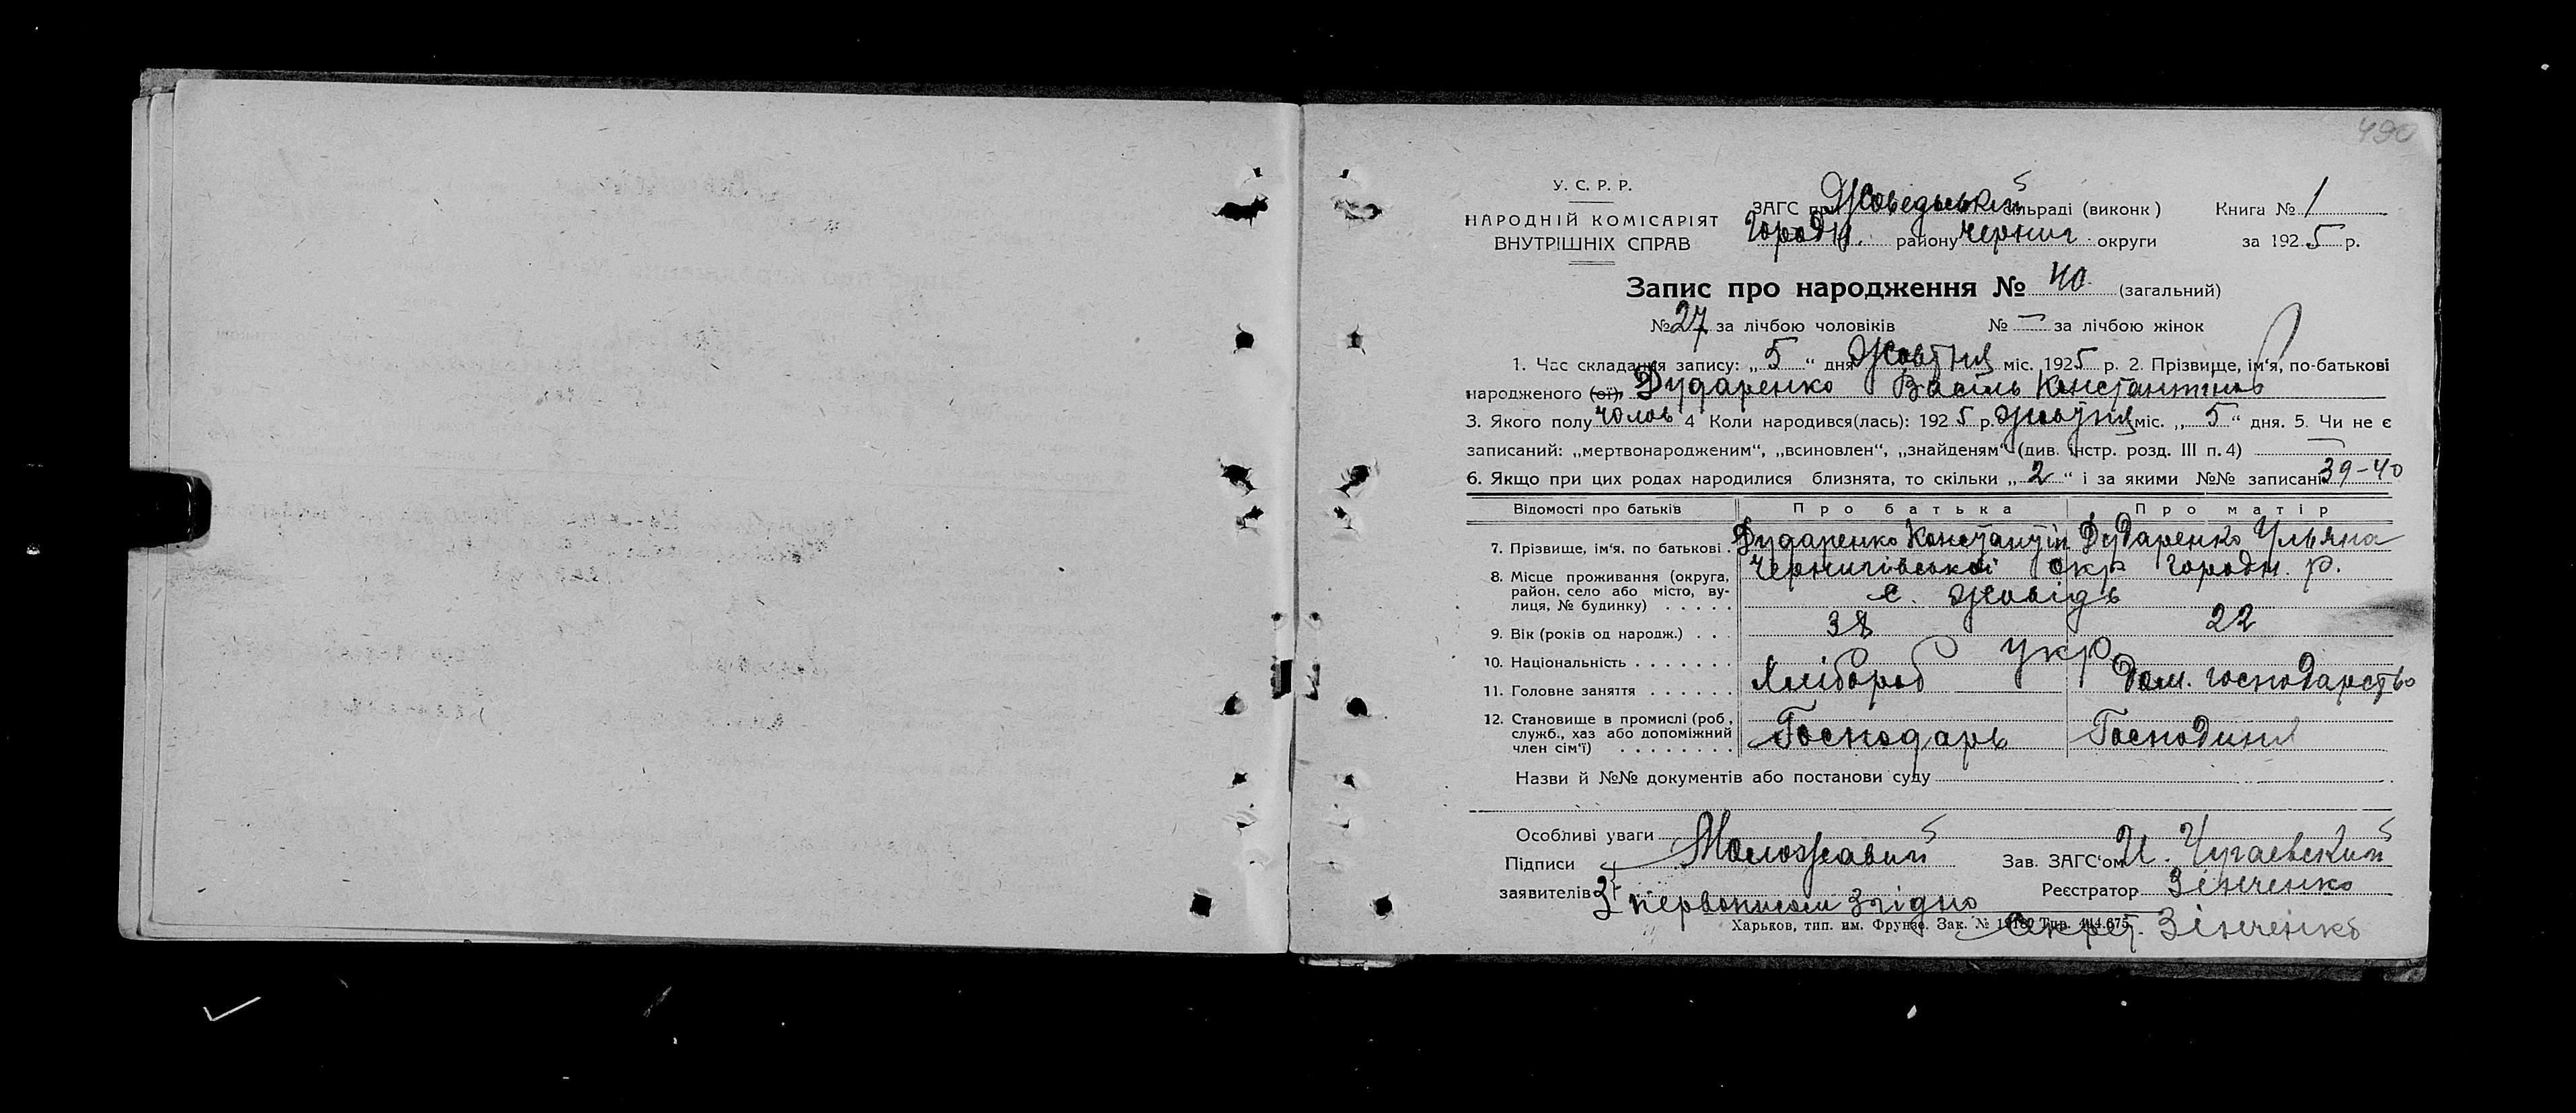 490
У. С. Р. Р.
НАРОДНІЙ КОМІСАРІЯТ
ВНУТРІШНІХ СПРАВ
ЗАГС при Жоведьський сільраді (виконк)
Городн. району Черниг. округи
Книга № 1
за 1925 р.
Запис про народження № 40 (загальний)
№ 27 за лічбою чоловіків № — за лічбою жінок
1. Час складання запису: „5“ дня Жовтня міс. 1925 р. 2. Прізвище, ім‘я, по-батькові
народженого (ої) Дударенко Василь Константинов
3. Якого полу чолов 4 Коли народився(лась): 1925 р. Жовтня міс. „5“ дня. 5. Чи не є
записаний: „мертвонародженим“, „всиновлен“, „знайденям“ (див. інстр. розд. III п. 4) —
6. Якщо при цих родах народилися близнята, то скільки „2“ і за якими №№ записані 39-40
Відомості про батьків Про батька Про матір
7. Прізвище, ім‘я, по батькові . Дударенко Константин Дударенко Ульяна
8. Місце проживання (округа, Чернигівської окр Городн. р.
район, село або місто, ву-
лиця, № будинку) . . . . . с. Жовідь
9. Вік (років од народж.) . . . 38 22
10. Національність . . . . . . . укр.
11. Головне заняття . . . . . . Хлібороб Дом. господарство
12. Становище в промислі (роб.,
служб., хаз або допоміжний Господарь Господиня
член сім‘ї) . . . . . . . .
Назви й №№ документів або постанови суду
Особливі уваги
Підписи Зав. ЗАГС‘ом И. Чугаевский
заявителів Реєстратор Зінченко
З первописом згідно
Харьков, тип. им. Фрунзе. Зак. №
Секрет. Зінченко